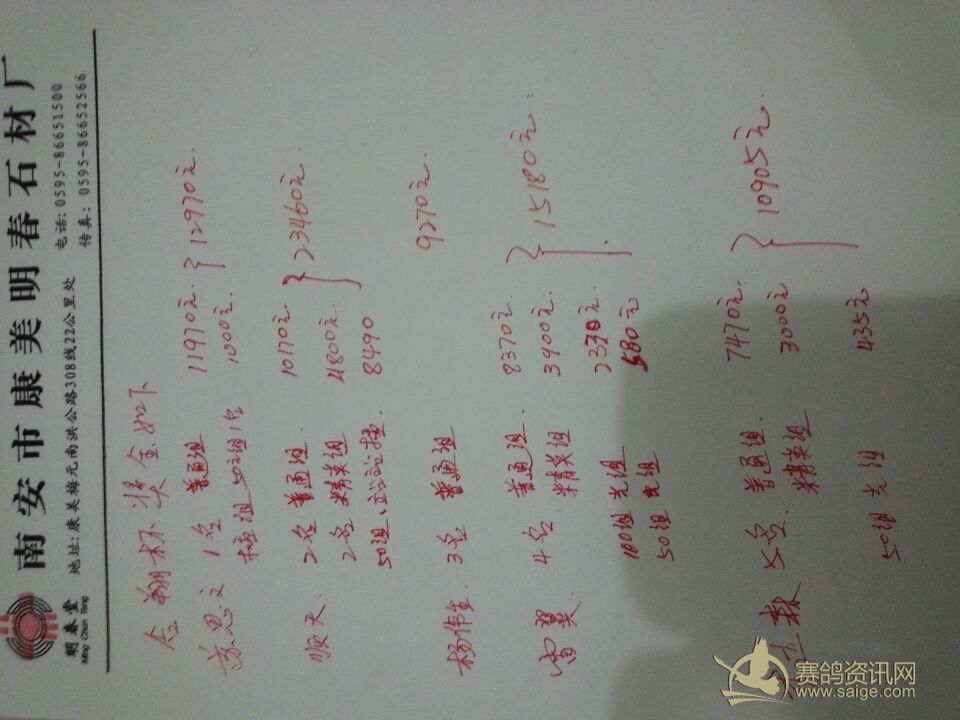 明春堂
Ming Chun Tang
南安市康美明春石材厂
地址:康美梅元南洪公路308线22公里处
电话:0595-86651500
传真:0595-86652566
翔杯奖金如下
苏思文 1名 普通组 11970元
组 50元组1名 1000元 } 12970元
顺天 2名 普通组 10170元
2名 精英组 4800元 } 23460元
50组 8490
杨伟生 3名 普通组 9270元
雷翼 4名 普通组 8370元
精英组 3900元 } 15180元
100组 2370元
50组 580元
林 5名 普通组 7470元
精英组 3000元 } 10905元
50组 435元
赛鸽资讯网
www.saige.com